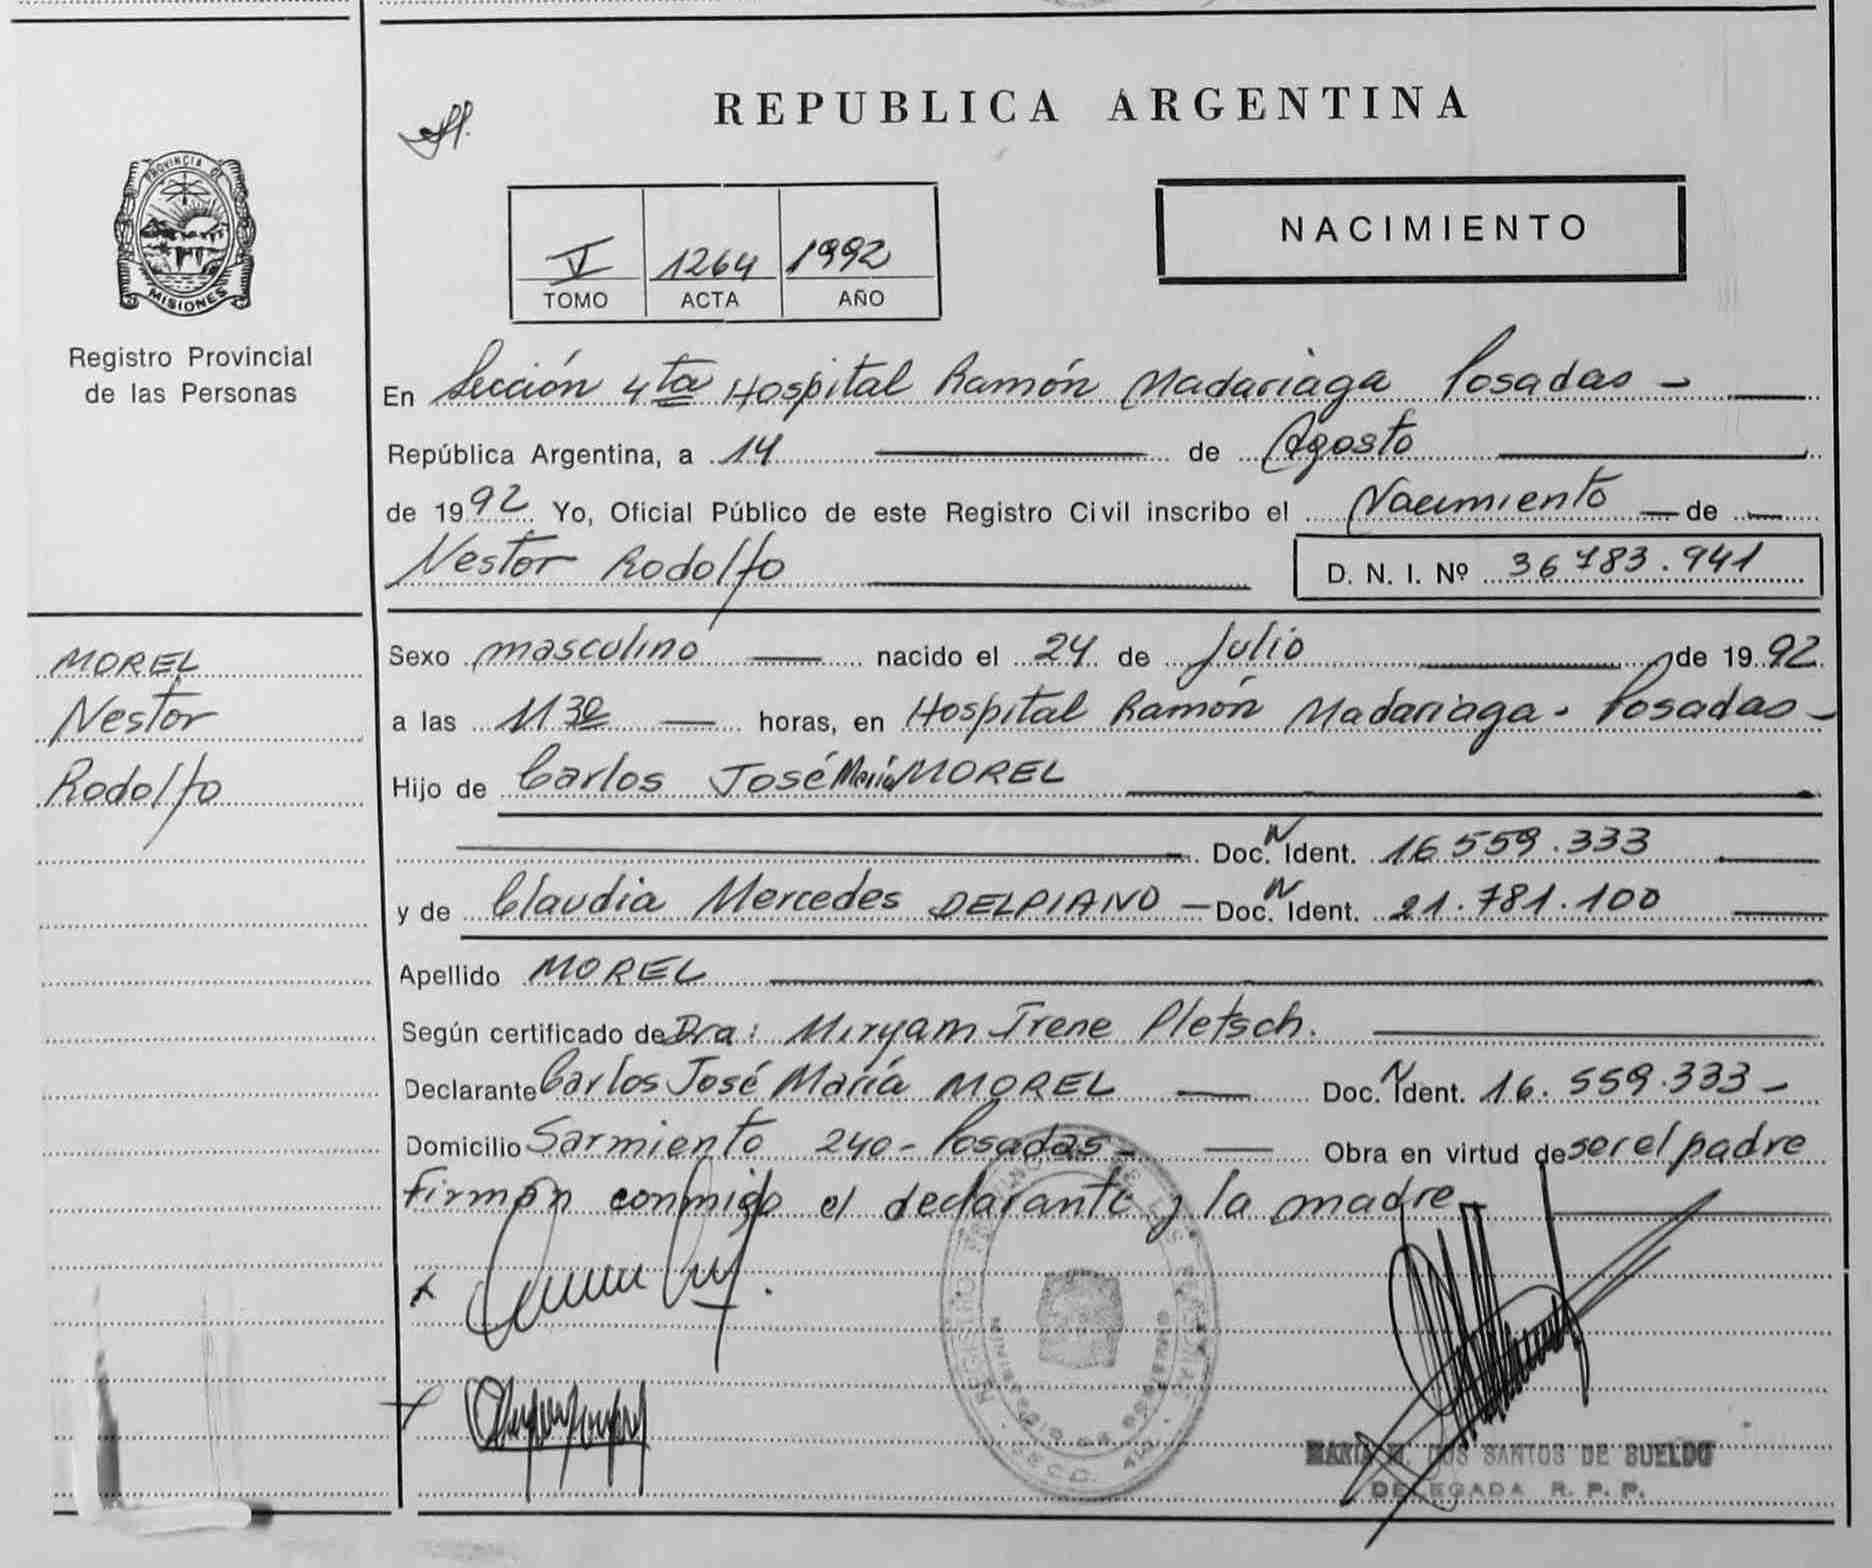 REPUBLICA ARGENTINA
PROVINCIA DE
MISIONES
Registro Provincial
de las Personas
V 1264 1992
TOMO ACTA AÑO
NACIMIENTO
En Sección 4ta Hospital Ramón Madariaga Posadas -
República Argentina, a 14 de Agosto
de 1992 Yo, Oficial Público de este Registro Civil inscribo el Nacimiento de
Nestor Rodolfo D. N. I. Nº 36 783.941
MOREL
Nestor
Rodolfo
Sexo masculino nacido el 24 de Julio de 1992
a las 1130 horas, en Hospital Ramón Madariaga - Posadas -
Hijo de Carlos José María MOREL
Doc. N Ident. 16 559.333
y de Claudia Mercedes DELPIANO - Doc. N Ident. 21.781.100
Apellido MOREL
Según certificado de Dra: Miryam Irene Pletsch.
Declarante Carlos José María MOREL Doc. N Ident. 16.559.333 -
Domicilio Sarmiento 240 - Posadas - Obra en virtud de ser el padre
Firman conmigo el declarante y la madre
REGISTRO PROVINCIAL DE LAS PERSONAS
MINISTERIO DE GOBIERNO
MARIA M. DOS SANTOS DE SUELDO
DELEGADA R. P. P.